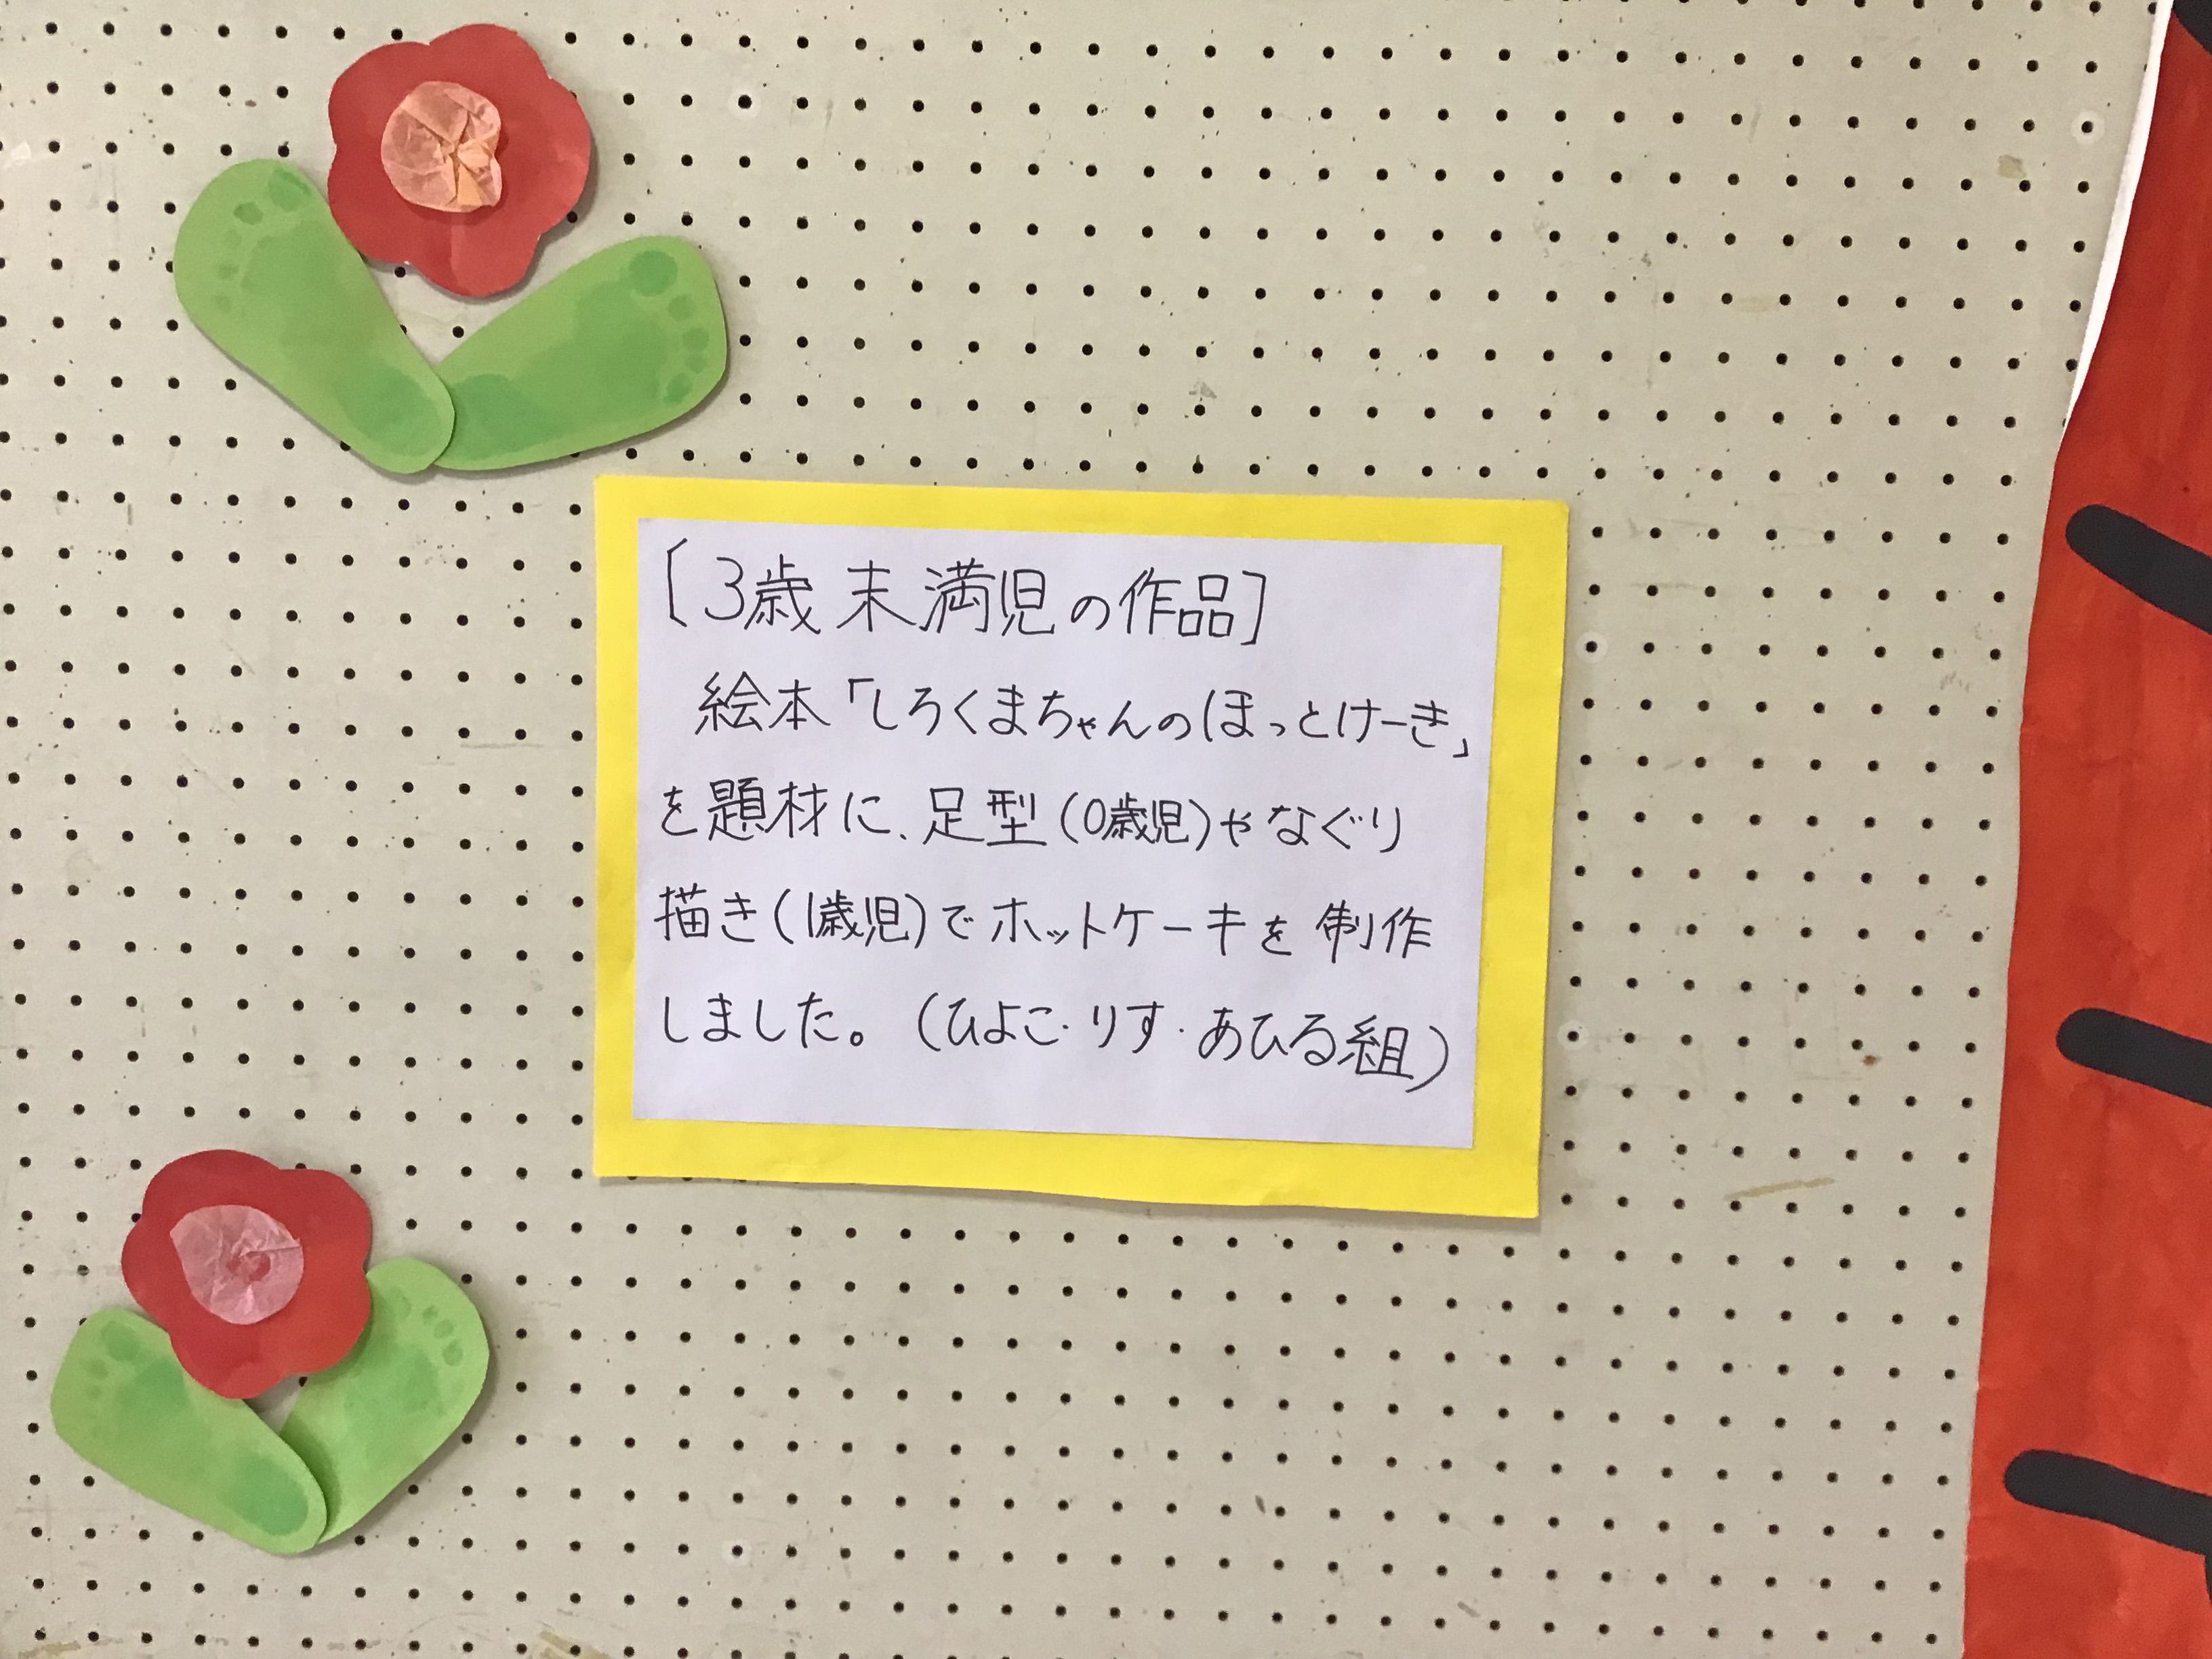 [3歳未満児の作品]
絵本「しろくまちゃんのほっとけーき」
を題材に、足型(0歳児)やなぐり
描き(1歳児)でホットケーキを制作
しました。(ひよこ・りす・あひる組)